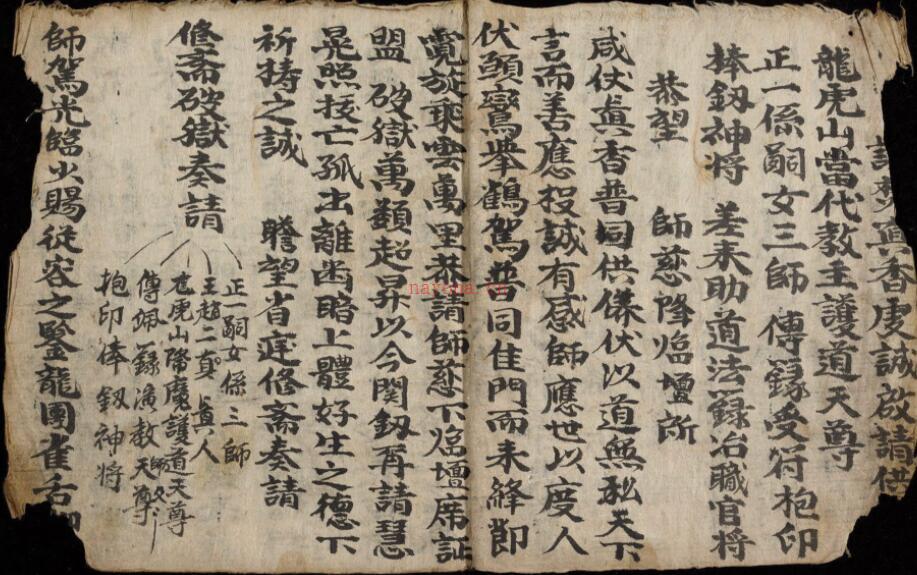 香虔誠啟請供
龍虎山當代教主護道天尊
正一係嗣女三師 傳籙受符抱印
捧釼神将 差来助道法籙治職官将
恭望 師慈降临壇所
咸伏真香普同供養伏以道無私天下
言而善應投誠有感師應世以度人
伏願鸞轝鶴駕普同隹門而来絳節
霓旌乘雲萬里恭請師慈下临壇席証
盟 破獄萬類超昇以今関釼再請慧
晃照亡孤出離幽暗上體好生之德下
祈祷之誠 瞻望省庭修斋奏請
修斋破獄奏請
正一嗣女係三師
王趙二真真人
虎山降魔護道天尊
傳籙演教天尊
抱印俸釼神将
師駕光临少賜從容之鑒龍團雀舌
nayona.cn